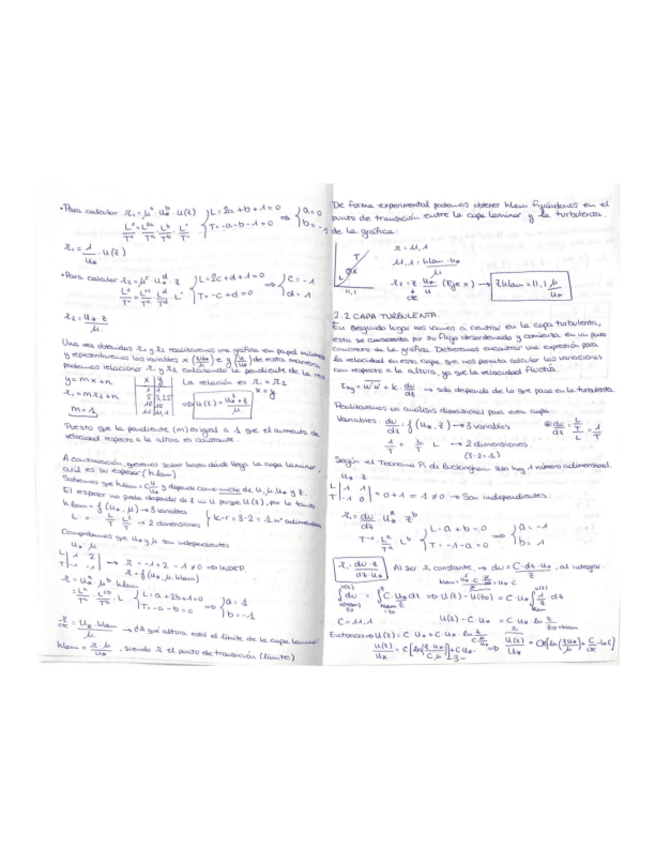 • Para calcular r₁ = μᵃ · u*ᵇ · u(z) { L = 2a + b + 1 = 0 ⇒ { a = 0
T = -a - b - 1 = 0 b = -1
r₁ = 1/u* · u(z)
• Para calcular r₂ = μᶜ · u*ᵈ · z { L = 2c + d + 1 = 0 ⇒ { c = -1
T = -c + d = 0 d = 1
r₂ = u* z / μ
Una vez obtenidos r₁ y r₂ realizaremos una gráfica en papel
y representaremos las variables x (zu*/μ) e y (u/u*) de esta manera
podemos relacionar r₁ y r₂ calculando la pendiente de la recta
y = mx + n x y La relación es r₁ = r₂
r₁ = mr₂ + n 1 1 x = y
5 5,25
10 10
m = 1 11 11,1 ⇒ u(z) = u*² · z / μ
Puesto que la pendiente (m) es igual a 1 que el aumento de
velocidad respecto a la altura es constante.
A continuación, queremos saber hasta dónde llega la capa laminar,
cuál es su espesor (hlam)
Sabemos que hlam = y depende como mucho de u, μ, u* y z.
El espesor no puede depender de z ni u porque u(z), por lo tanto
hlam = f (u*, μ) → 3 variables
→ 2 dimensiones { k-r = 3-2 = 1 nº adimensional
Comprobamos que u* y μ son independientes
u* μ
L | 1 2
T | -1 -1 → r = -1 + 2 = 1 ≠ 0 ⇒ INDEP.
r = f (u*, μ, hlam)
r = u*ᵃ · μᵇ · hlam
{ L = a + 2b + 1 = 0 ⇒ { a = 1
T = -a - b = 0 b = -1
r = u* · hlam / μ → ¿A qué altura está el límite de la capa laminar?
cte
hlam = r · μ / u*, siendo r el punto de transición (límite)
De forma experimental podemos obtener hlam fijándonos en el
punto de transición entre la capa laminar y la turbulenta,
de la gráfica:
T L 11,1
r = 11,1
11,1 = hlam · u* / μ
r₂ = z u*/μ (Eje x) → zhlam = 11,1 μ/u*
cte
2.2 CAPA TURBULENTA.
En segundo lugar nos vamos a centrar en la capa turbulenta,
esta se caracteriza por su flujo desordenado y comienza en un punto
concreto de la gráfica. Deberemos encontrar una expresión para
la velocidad en esta capa que nos permita calcular las variaciones
con respecto a la altura, ya que la velocidad fluctúa.
τxy = w'u' = k · du/dz → solo depende de lo que pasa en la turbulenta
Realizaremos un análisis dimensional para esta capa:
Variables: du/dz = f (u*, z) → 3 variables
1/T = L/T L → 2 dimensiones
(3-2=1)
Según el Teorema Pi de Buckingham solo hay 1 número adimensional.
u* z
L | 1 1
T | -1 0 | = 0 + 1 = 1 ≠ 0 → Son independientes.
r = du/dz · u*ᵃ · zᵇ
{ L: a + b = 0 ⇒ { a = -1
T = -1 - a = 0 b = 1
r = du · z / dz · u* Al ser r constante, → du = C · dz u* / z, al integrar:
∫ du = ∫ C · u* dz/z ⇒ u(z) - u(z0) = C · u* ∫ 1/z · dz
C = 11,1 u(z) - C · u* = C · u* ln z/z0
Entonces ⇒ u(z) = C · u* + C · u* · ln
u(z)/u* =